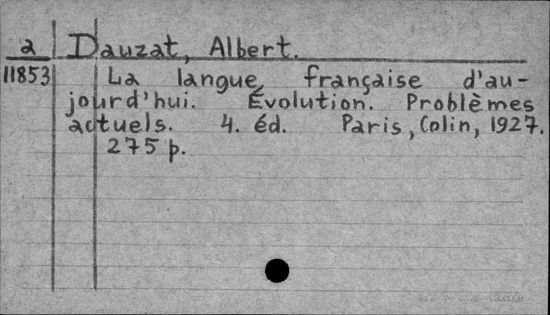 a Dauzat, Albert.
11853 La langue française d'au-
jourd'hui. Évolution. Problèmes
actuels. 4. éd. Paris, Colin, 1927.
275 p.